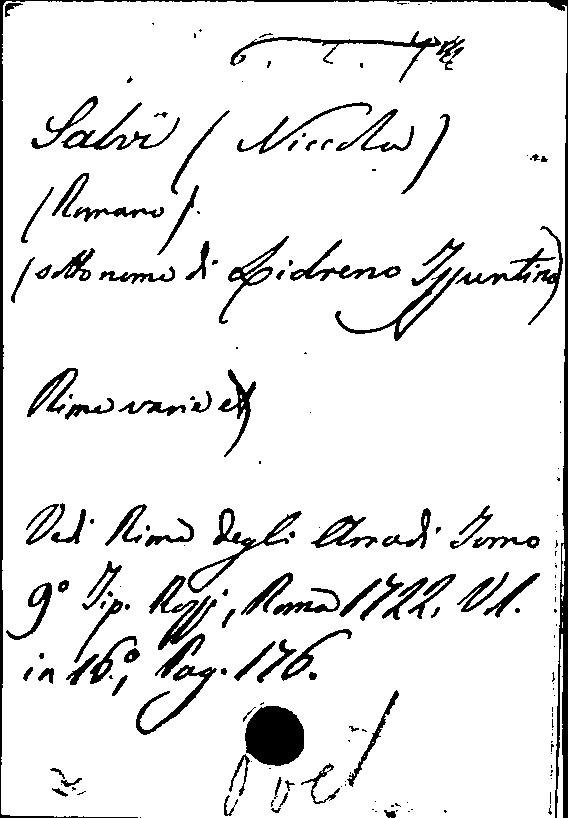 6. 2. 4
Salvi (Niccola)
(Romano).
(sotto nome di Lidreno Issuntino)
Rime varie et)
Vedi Rime degli Arcadi Tomo
9º Tip. Rossi, Roma 1722. Vl.
in 16º, Pag. 176.
Poet